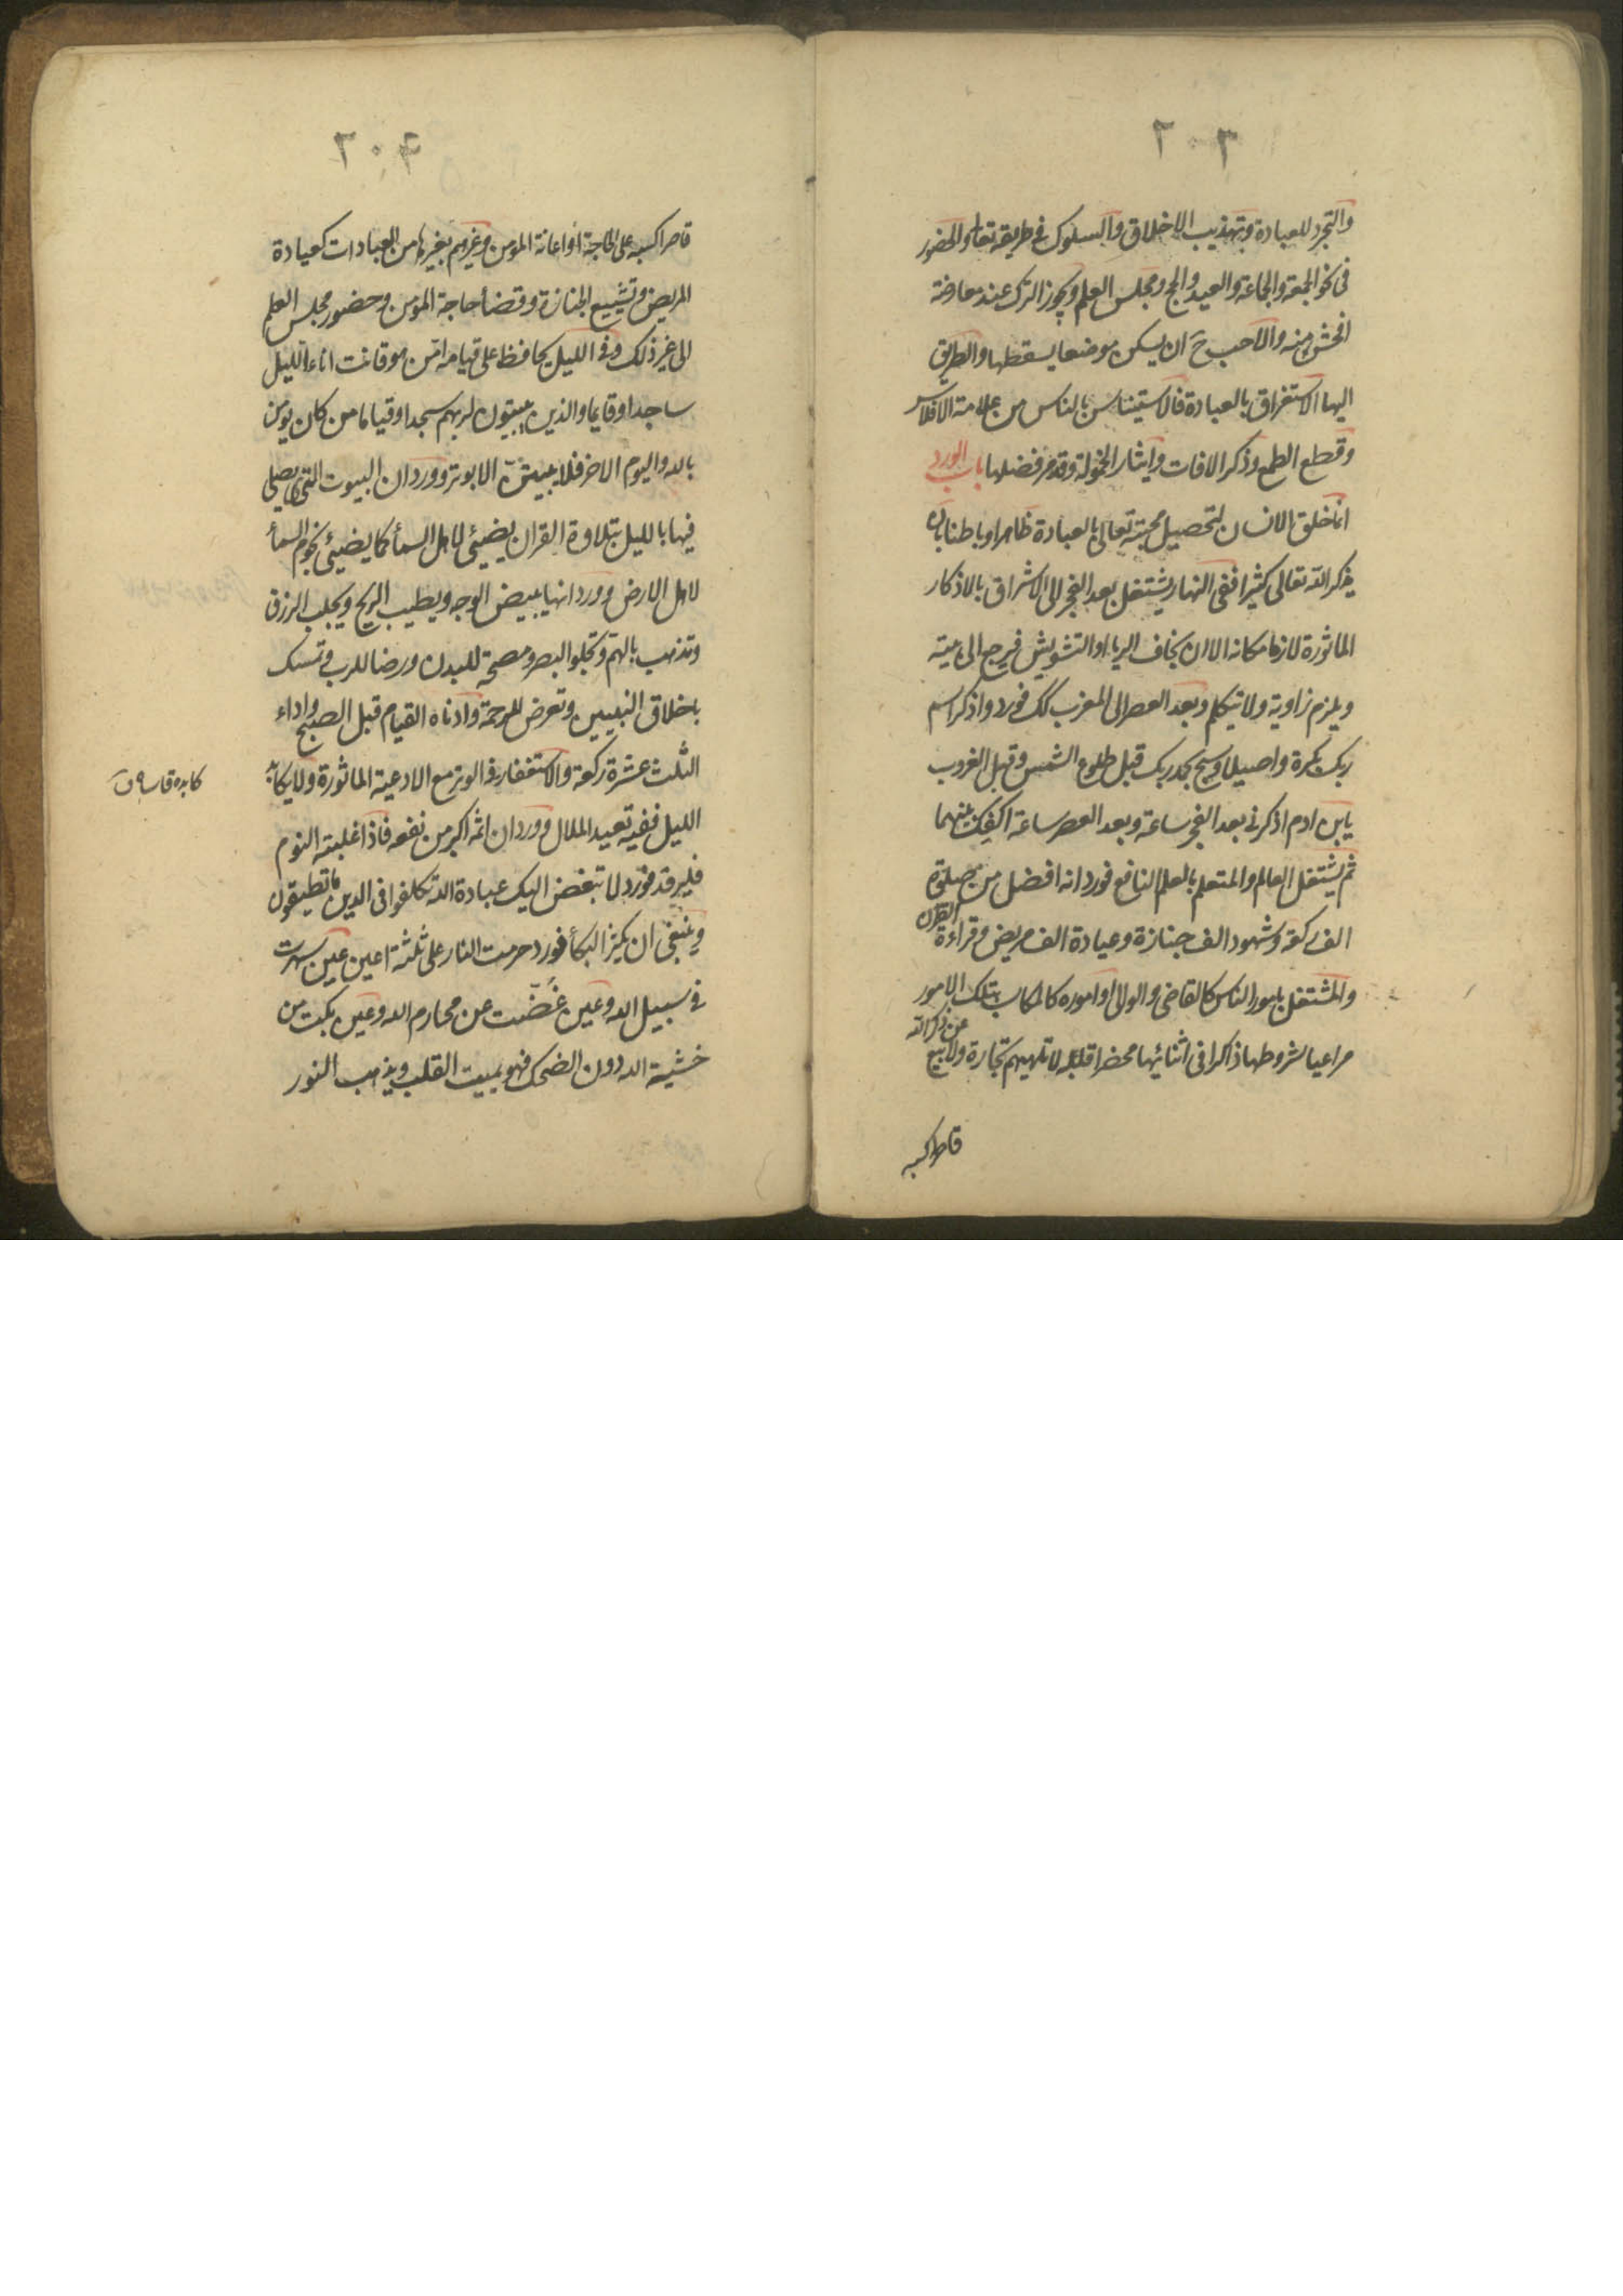 ٢٠٣
والتجرد للعبادة وتهذيب الاخلاق والسلوك فى طريقه تعالى والحضور
فى نحو الجمعة والجماعة والعيد والحج ومجلس العلم ويجوز الترك عند معارضة
افحش منه والاحب ح ان يسكن موضعا يسقطها والطريق
اليها الاستغراق بالعبادة فالاستيناس بالناس من علامة الافلاس
وقطع الطمع وذكر الافات وايثار الخمولة وقد مر فضلها باب الورد
انما خلق الانسان لتحصيل محبته تعالى بالعبادة ظاهرا وباطنا بان
يذكر الله تعالى كثيرا ففى النهار يشتغل بعد الفجر الى الاشراق بالاذكار
الماثورة لازما مكانه الا ان يخاف الريا او التشويش فيرجع الى بيته
ويلزم زاوية ولا يتكلم وبعد العصر الى المغرب كك فورد واذكر اسم
ربك بكرة واصيلا وسبح بحمد ربك قبل طلوع الشمس وقبل الغروب
يابن ادم اذكرنى بعد الفجر ساعة وبعد العصر ساعة اكفك بينهما
ثم يشتغل العالم والمتعلم بالعلم النافع فورد انه افضل من صلوة
الف ركعة وشهود الف جنازة وعيادة الف مريض وقراءة القران
والمشتغل بامور الناس كالقاضى والوالى او اموره كالمكاسب بتلك الامور
مراعيا لشروطها ذاكرا فى اثنائها محضرا قلبه لا تلهيهم تجارة ولا بيع عن ذكر الله
قاصرا كسبه
٢٠٤
قاصرا كسبه على الحاجة او اعانة المومن وغيرهم بغيرها من العبادات كعيادة
المريض وتشييع الجنازة وقضأ حاجة المومن وحضور مجلس العلم
الى غير ذلك وفى الليل يحافظ على قيامه امن هو قانت اناء الليل
ساجدا وقايما والذين يبيتون لربهم سجدا وقياما من كان يومن
بالله واليوم الاخر فلا يبيتن الا بوتر وورد ان البيوت التى يصلى
فيها بالليل بتلاوة القران يضيئى لاهل السمأ كما يضيئى نجوم السمأ
لاهل الارض وورد انها يبيض الوجه ويطيب الريح ويجلب الرزق
وتذهب بالهم وتجلو البصر ومصحة للبدن ورضا للرب وتمسك
باخلاق النبيين وتعرض للرحمة وادناه القيام قبل الصبح واداء
الثلث عشرة ركعة والاستغفار فى الوتر مع الادعية الماثورة ولا يكابد
كابده قاساه ق
الليل ففيه تعيد الملال وورد ان اثمه اكبر من نفعه فاذا غلبته النوم
فليرقد فورد لا تبغض اليك عبادة الله تكلفوا فى الدين ما تطيقون
وينبغى ان يكثر البكأ فورد حرمت النار على ثلثة اعين عين سهرت
فى سبيل الله وعين غضت عن محارم الله وعين بكت من
خشية الله دون الضحك فهو يميت القلب ويذهب النور